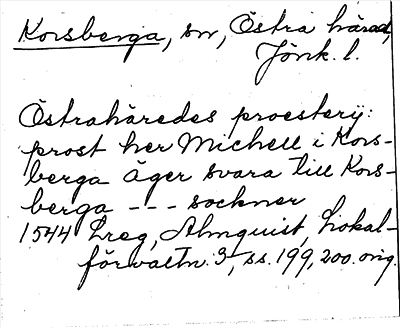 Korsberga, sn, Östra härad,
Jönk. l.
Östrahäredes proestery:
prost her Michell i Kors-
berga äger svara till Kors-
berga --- sockner
1544 Lreg, Almquist, Lokal-
förvaltn. 3, ss. 199, 200. orig.